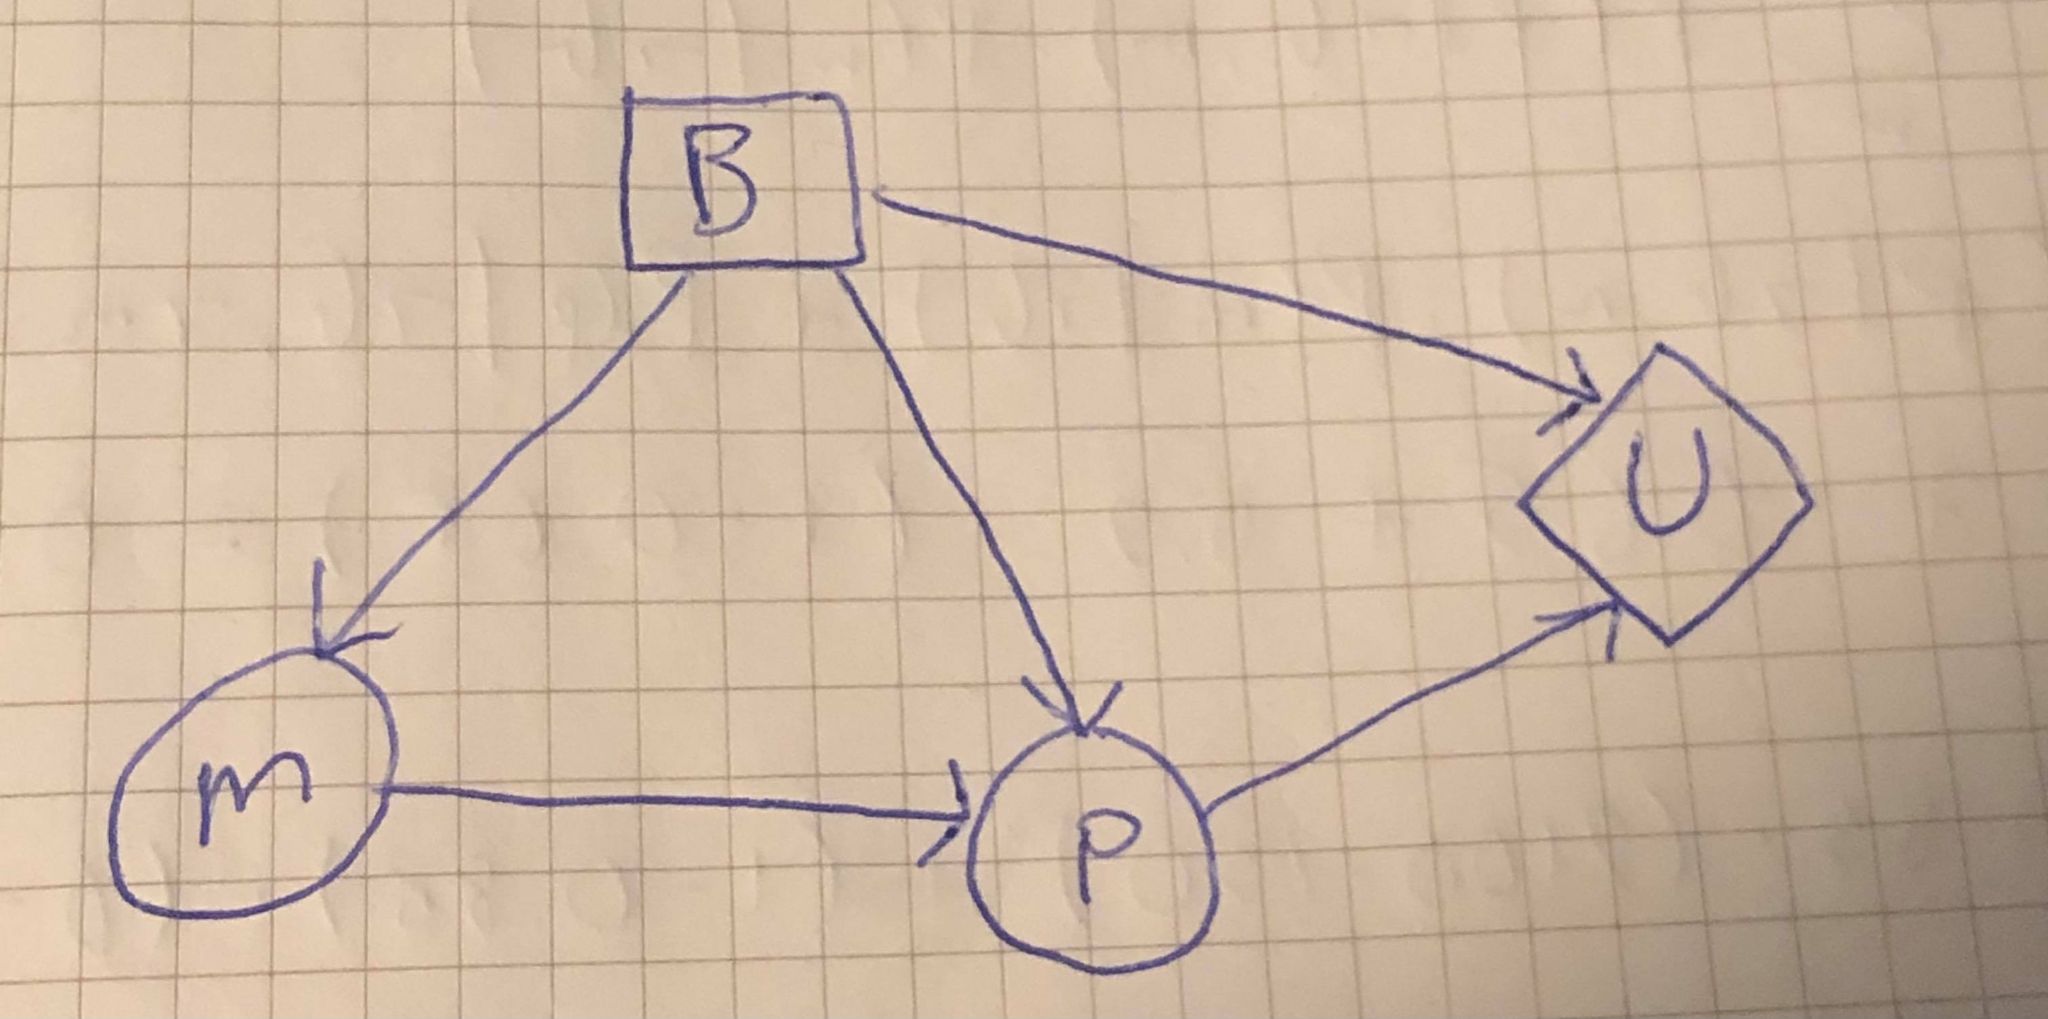 B
U
m
P